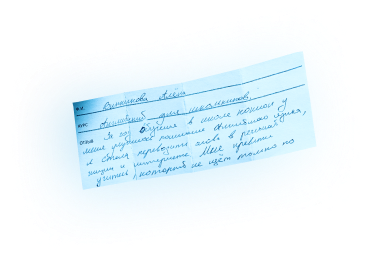 Ф.И. Винникова Алёна
КУРС Английский для школьников.
ОТЗЫВ За год обучения в школе коннон у
меня улучшилось понимание английского языка,
и стала переводить слова в реальной
жизни и интернете. Мне нравится
учитель, который не идёт только по